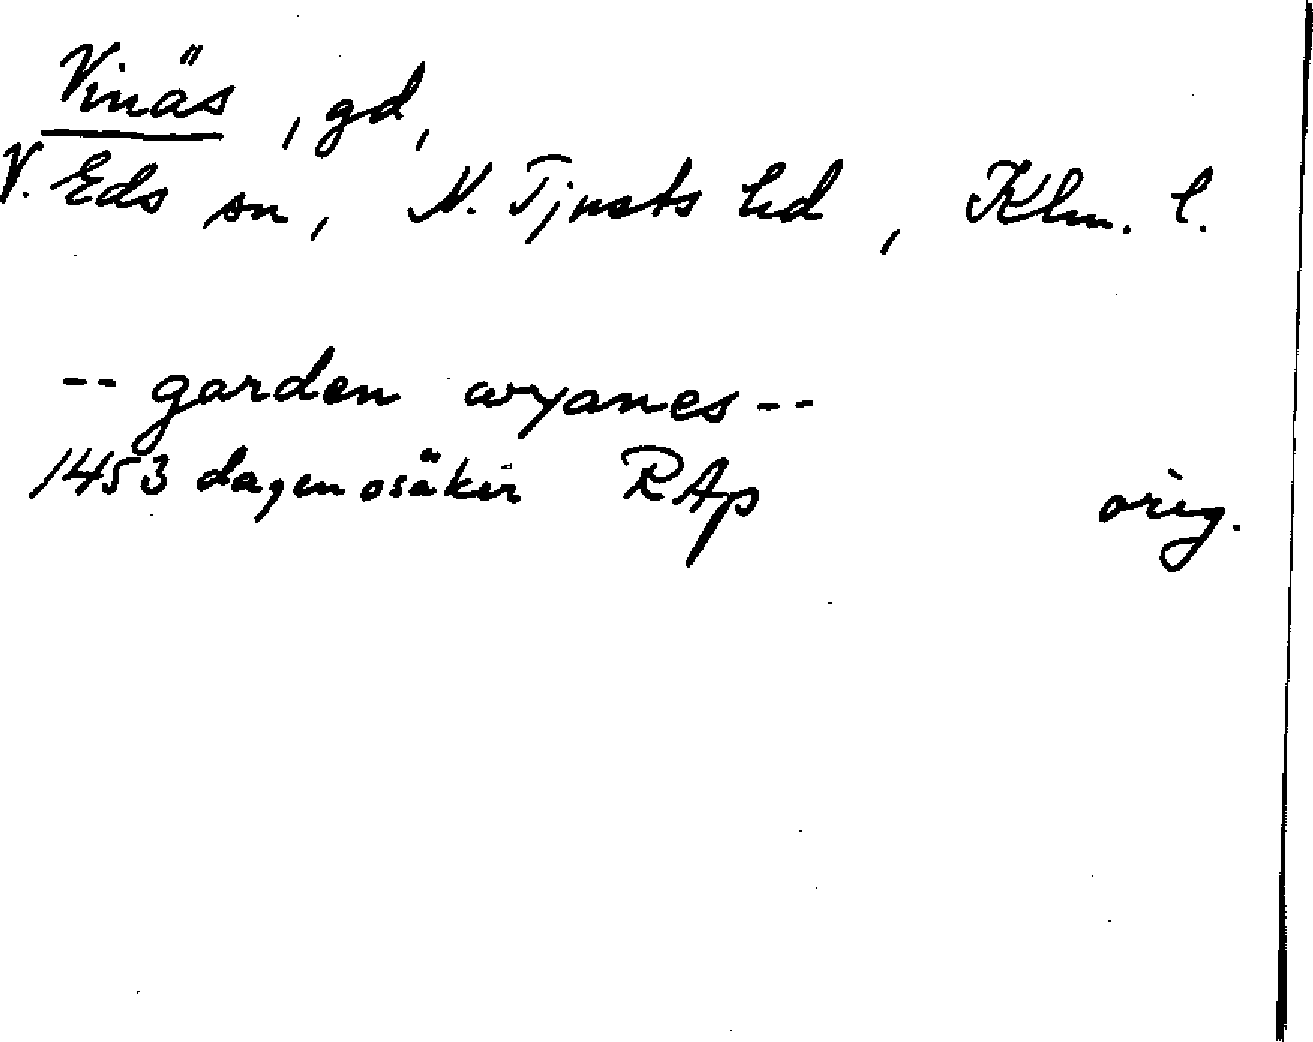 Vinäs, gd,
V. Eds sn, N. Tjusts hd, Klm. l.
-- garden wyanes --
1453 dagen osäker RAp orig.